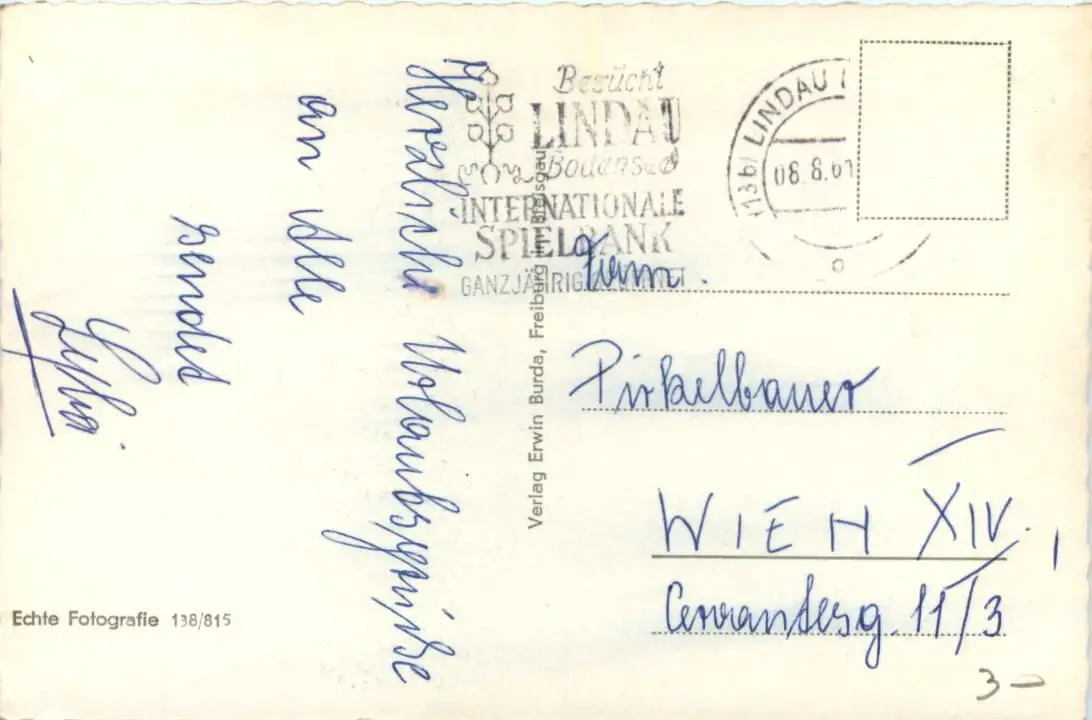 Herzliche Urlaubsgrüße
an Alle
sendet
Lydia.
Besucht
LINDAU
Bodensee
INTERNATIONALE
SPIELBANK
GANZJÄHRIG GEÖFFNET
(13b) LINDAU (
08.8.61
Verlag Erwin Burda, Freiburg im Breisgau
Fam.
Pirkelbauer
WIEN XIV.
Cervantesg. 11/3
Echte Fotografie 138/815
3-